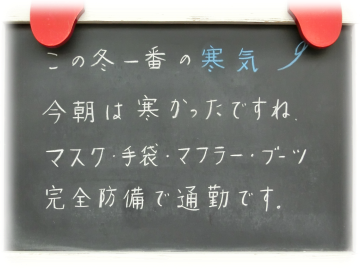 この冬一番の寒気
今朝は寒かったですね.
マスク・手袋・マフラー・ブーツ
完全防備で通勤です。